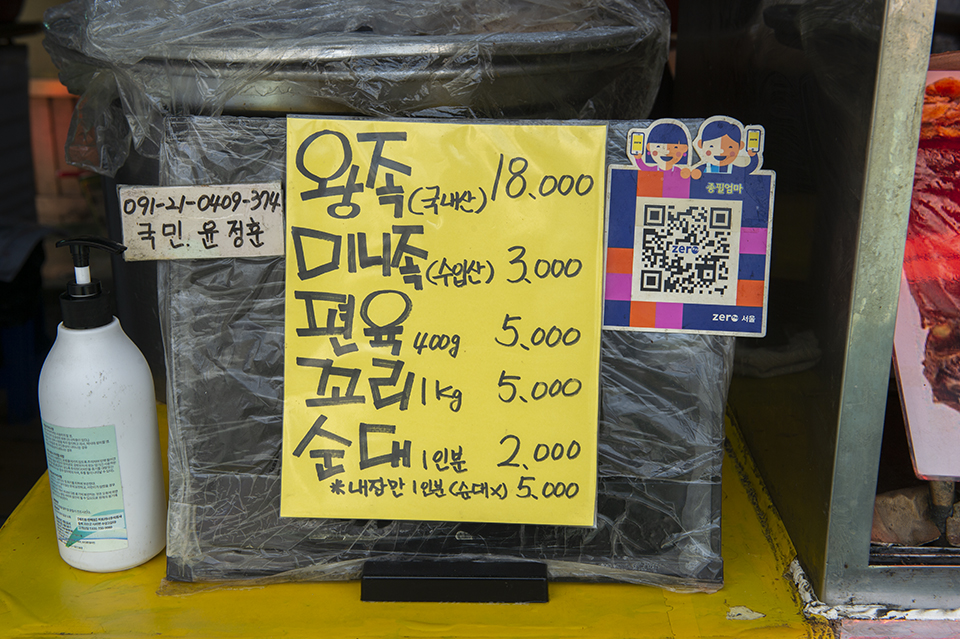 왕족(국내산) 18.000
미니족(수입산) 3.000
편육 400g 5.000
꼬리 1kg 5.000
순대 1인분 2.000
*내장만 1인분(순대x) 5.000
091-21-0409-374
국민. 윤정훈
종필엄마
zero
zero 서울